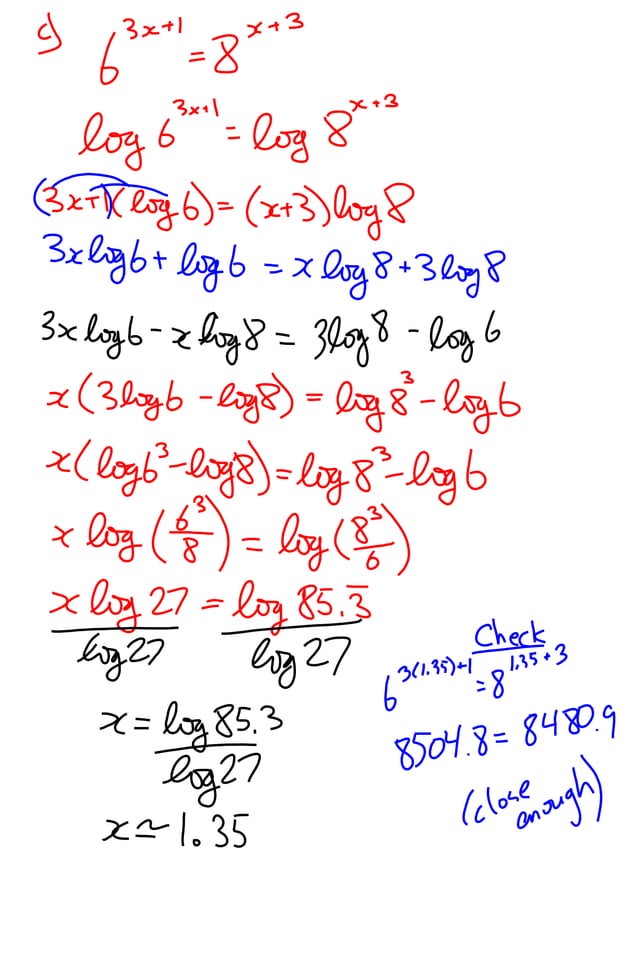 c) 6^{3x+1} = 8^{x+3}
log 6^{3x+1} = log 8^{x+3}
(3x+1)(log 6) = (x+3) log 8
3x log 6 + log 6 = x log 8 + 3 log 8
3x log 6 - x log 8 = 3 log 8 - log 6
x (3 log 6 - log 8) = log 8^3 - log 6
x (log 6^3 - log 8) = log 8^3 - log 6
x log (6^3/8) = log (8^3/6)
x log 27 / log 27 = log 85.3̅ / log 27
x = log 85.3 / log 27
x ≃ 1.35
Check
6^{3(1.35)+1} = 8^{1.35+3}
8504.8 = 8480.9
(close
enough)